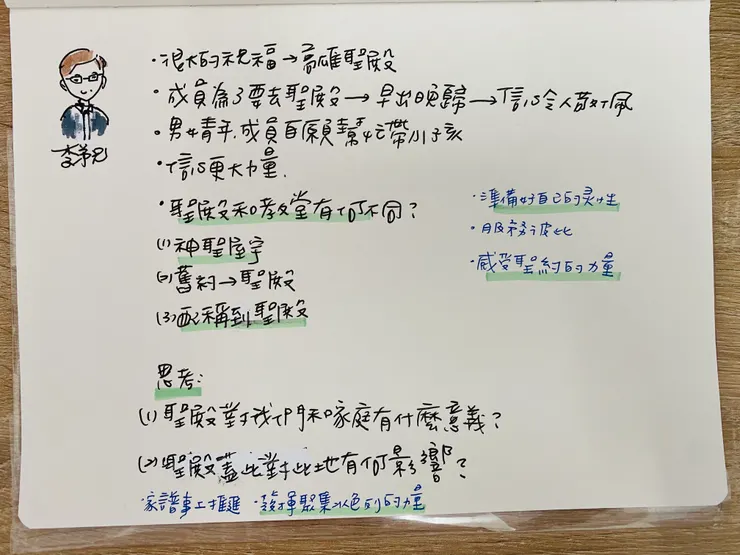 李弟兄
・很大的祝福→高雄聖殿
・成員為了要去聖殿→早出晚歸→信心令人敬佩
・男女青年.成員自願幫忙帶小孩
・信心更大力量.
・聖殿和教堂有何不同？
(1) 神聖屋宇
(2) 舊約→聖殿
(3) 配稱到聖殿
・準備好自己的灵性
・服務彼此
・感受聖約的力量
思考：
(1) 聖殿對我們和家庭有什麼意義？
(2) 聖殿蓋此對此地有何影響？
・家譜事工推進 ・發揮聚集以色列的力量